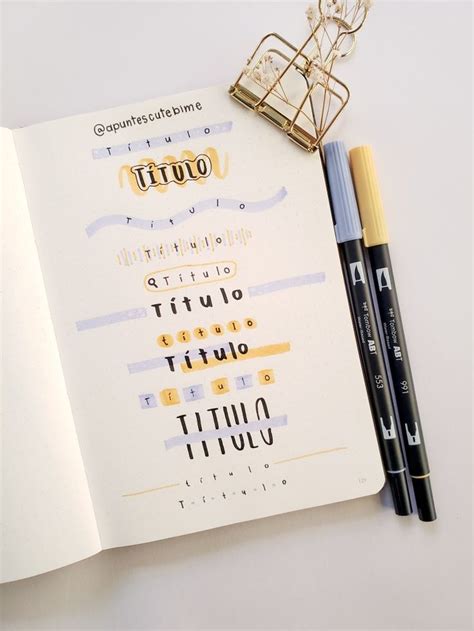 @apuntescutebime
Título
TÍTULO
Título
Título
Título
Título
título
Título
Título
TITULO
título
Título
Tombow ABT
553
Tombow ABT
991